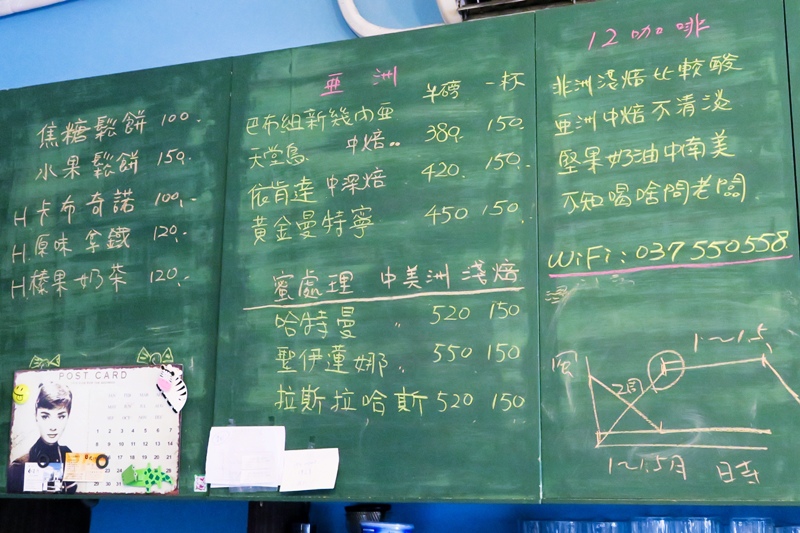 焦糖鬆餅 100.
水果鬆餅 150.
H.卡布奇諾 100.
H.原味拿鐵 120.
H.榛果奶茶 120.
POST CARD
亞洲 半磅 一杯
巴布紐新幾內亞
天堂鳥 中焙 380. 150.
依肯達 中深焙 420. 150.
黃金曼特寧 450 150.
蜜處理 中美洲淺焙
哈特曼 520 150
聖伊蓮娜 550 150
拉斯拉哈斯 520 150
12咖啡
非洲淺焙比較酸
亞洲中焙不清淡
堅果奶油中南美
不知喝啥問老闆
WiFi:037550558
1~1.5
2周
1~1.5月